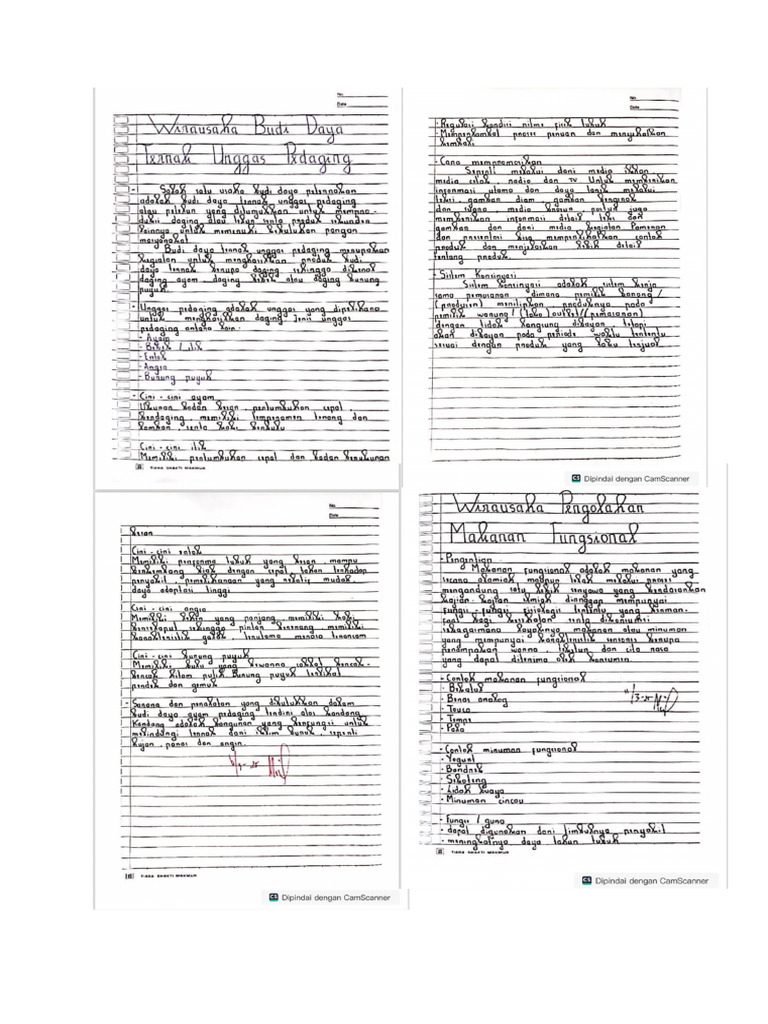 No.
Date
Wirausaha Budi Daya
Ternak Unggas Pedaging
- Salah satu usaha budi daya peternakan
adalah budi daya ternak unggas pedaging
atau petelur yang ditumbuhkan untuk
daging atau telur serta produk
lainnya untuk memenuhi kebutuhan pangan
masyarakat
Budi daya ternak unggas pedaging merupakan
kegiatan untuk menghasilkan produk budi
daya ternak berupa daging sehingga dikenal
daging ayam, daging bebek atau daging burung
puyuh
- Unggas pedaging adalah unggas yang dipelihara
untuk menghasilkan daging jenis unggas
pedaging antara lain:
- Ayam
- Bebek / itik
- Entok
- Angsa
- Burung puyuh
- Ciri-ciri ayam
Ukuran badan besar, pertumbuhan cepat,
berdaging, memiliki temperamen tenang dan
lamban, serta kaki berbulu
Ciri-ciri itik
Memiliki pertumbuhan cepat dan badan berukuran
TIGER SHAKTI MAKMUR
No.
Date
- Regulasi kondisi ritme fisik tubuh
- Memperlambat proses penuaan dan menyehatkan
kembali
- Cara mempromosikan
Seperti melalui dari media iklan,
media cetak, radio dan TV Untuk memberikan
informasi utama dan daya tarik melalui
teks, gambar diam, gambar bergerak
dan suara, media brosur, poster juga
memberikan informasi detail teks dan
gambar dan dari media kegiatan Pameran
dan presentasi bisa memperlihatkan contoh
produk dan menjelaskan lebih detail
tentang produk.
- Sistem konsinyasi
Sistem konsinyasi adalah sistem kerja
sama pemasaran dimana pemilik barang/
(produsen) menitipkan produknya pada
pemilik warung/ (toko) outlet/ (pemasaran)
dengan tidak langsung dibayar, tetapi
akan dibayar pada periode waktu tertentu
sesuai dengan produk yang laku terjual
Dipindai dengan CamScanner
No.
Date
besar
Ciri-ciri entok
Memiliki performa tubuh yang besar, mampu
berkembang baik dengan cepat tahan terhadap
penyakit, pemeliharaan yang relatif mudah
daya adaptasi tinggi
Ciri-ciri angsa
Memiliki leher yang panjang memiliki kaki
berselaput sehingga pintar berenang memiliki
karakteristik galak, terutama merasa terancam
Ciri-ciri burung puyuh
Memiliki bulu yang berwarna coklat bercak-
bercak hitam putih Burung puyuh terlihat
pendek dan gemuk
- Sarana dan peralatan yang dibutuhkan dalam
budi daya ayam pedaging terdiri atas kandang
Kandang adalah bangunan yang berfungsi untuk
melindungi ternak dari iklim buruk seperti
hujan, panas dan angin.
TIGER SHAKTI MAKMUR
Dipindai dengan CamScanner
Wirausaha Pengolahan
Makanan Fungsional
- Pengertian
Makanan fungsional adalah makanan yang
secara alamiah maupun telah melalui proses
mengandung satu lebih senyawa yang berdasarkan
kajian-kajian ilmiah dianggap mempunyai
fungsi-fungsi fisiologis tertentu yang berman-
faat bagi kesehatan serta dikonsumsi
sebagaimana layaknya makanan atau minuman
yang mempunyai karakteristik sensoris berupa
penampakan warna, tekstur dan cita rasa
yang dapat diterima oleh konsumen.
- Contoh makanan fungsional
- Bekatul
- Beras
-
- Tempe
-
- Contoh minuman fungsional
- Yogurt
- Bandrek
- Sekoteng
- Lidah buaya
- Minuman cincau
- Fungsi / guna
- dapat digunakan dari timbulnya penyakit
- meningkatnya daya tahan tubuh
TIGER SHAKTI MAKMUR
Dipindai dengan CamScanner